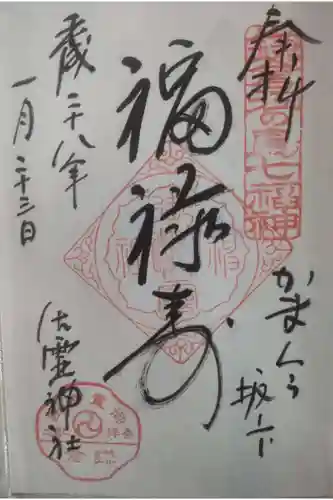 奉拝
鎌倉江の島七福神
かまくら
坂ノ下
福禄寿
二十八年
一月二十三日
御霊神社